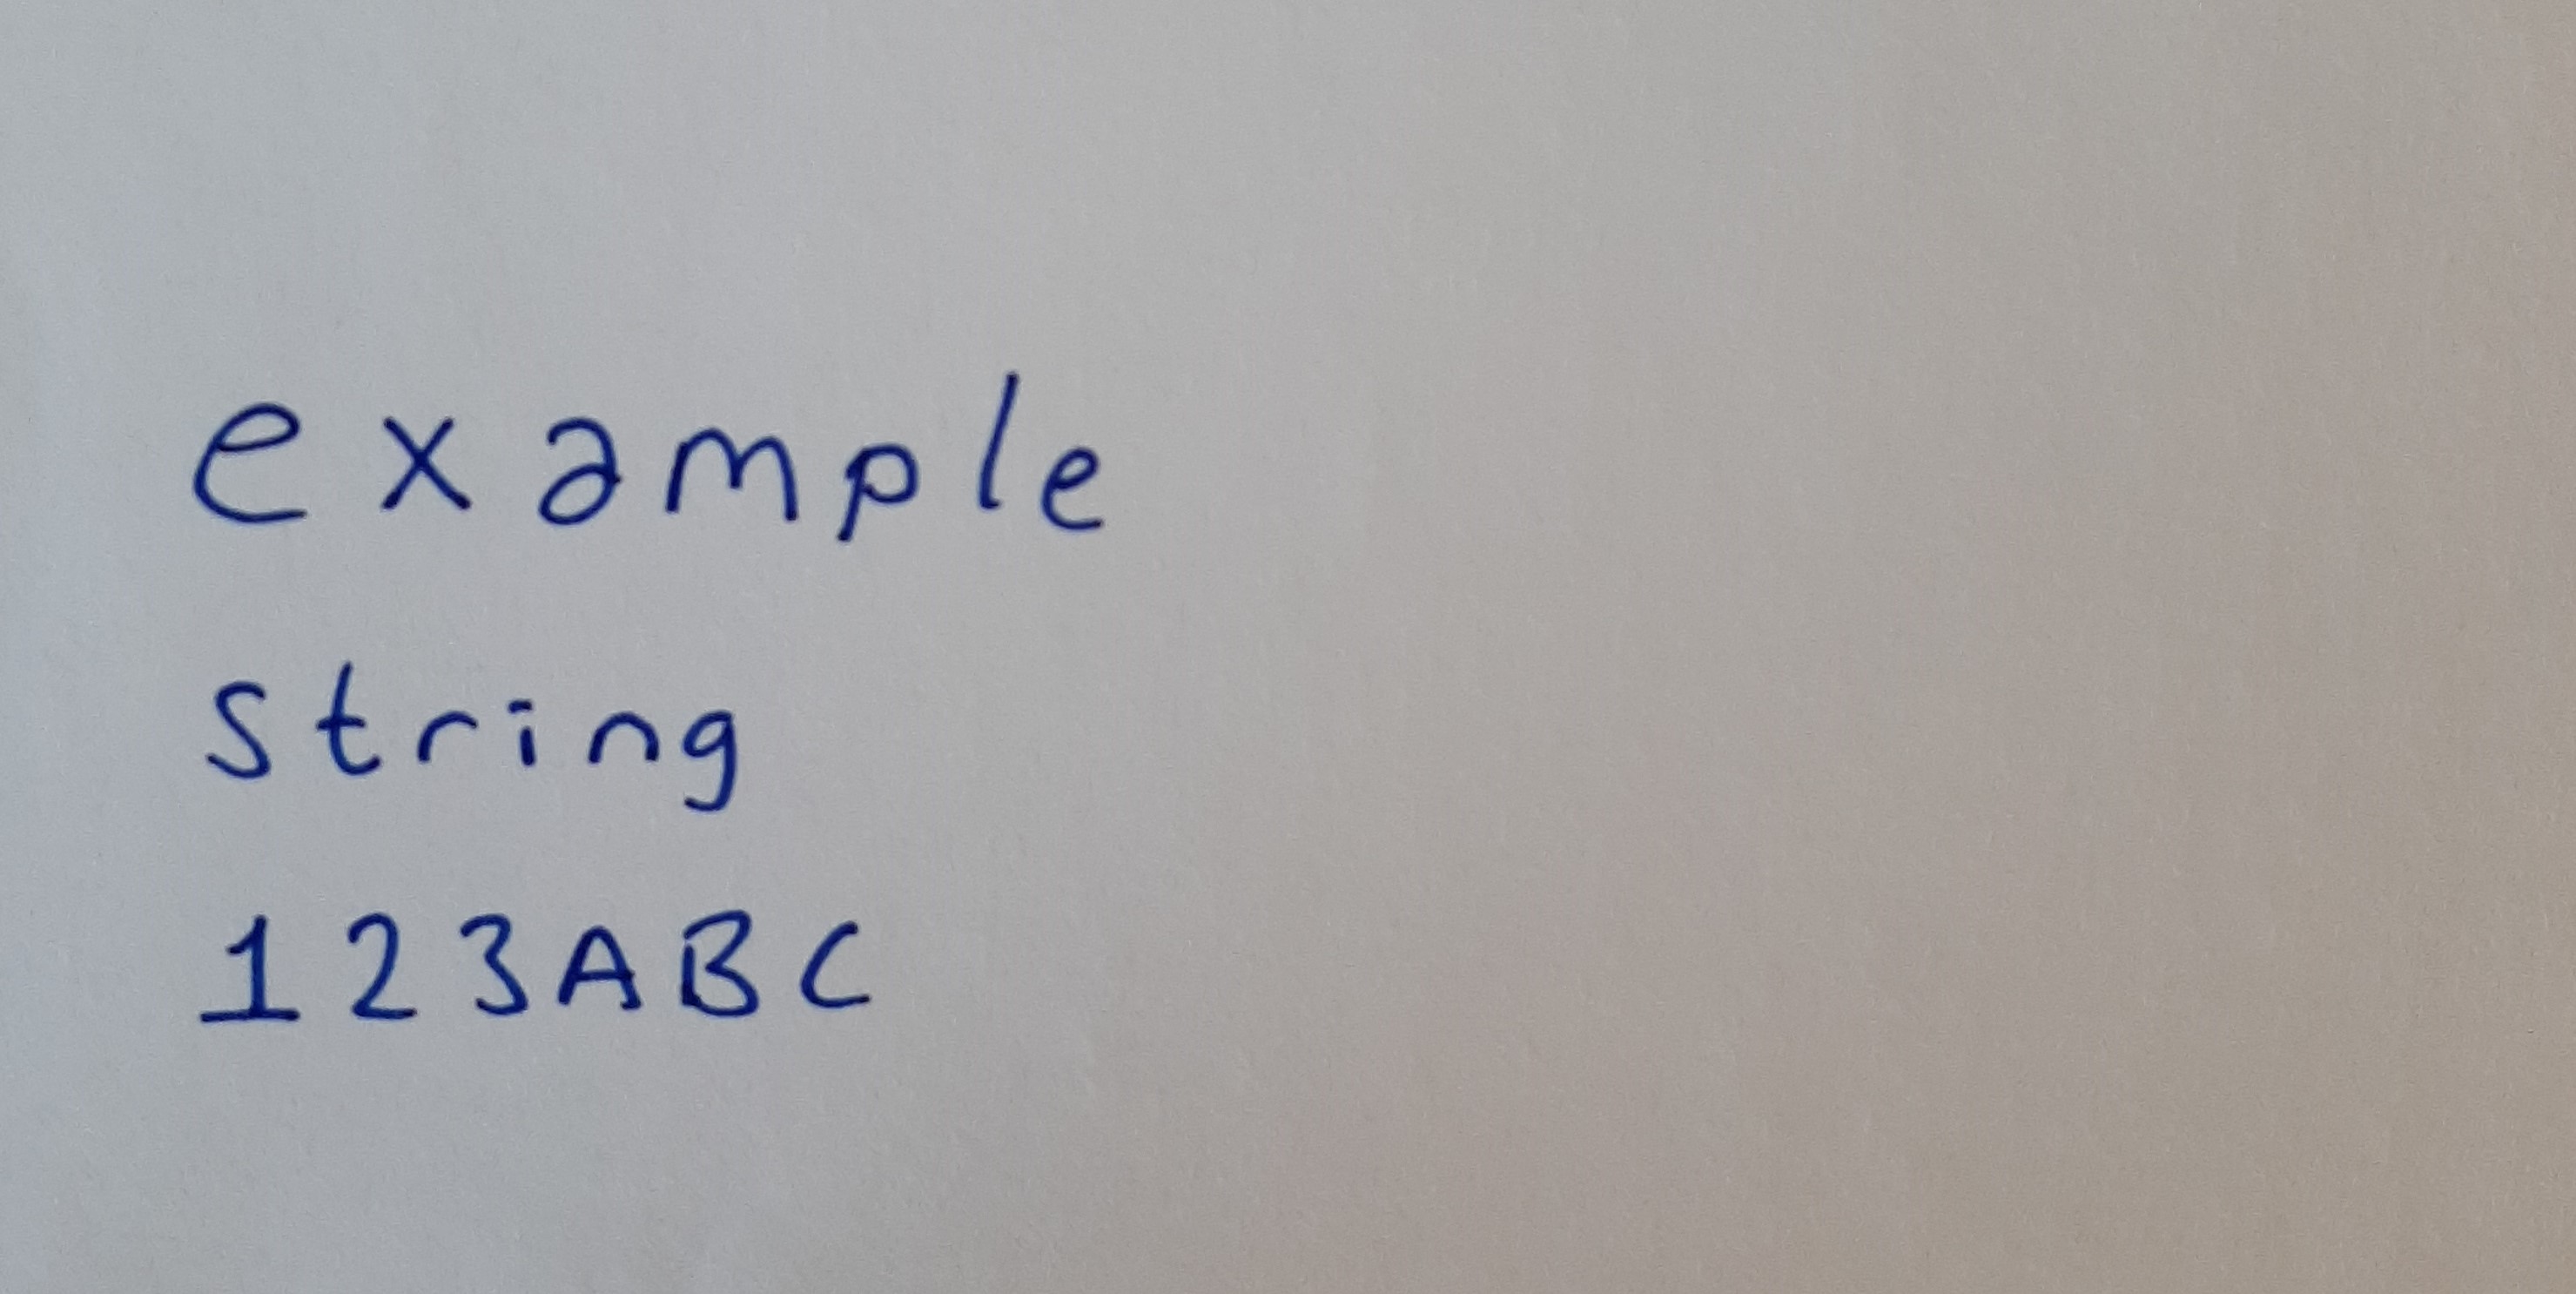 example
string
123ABC